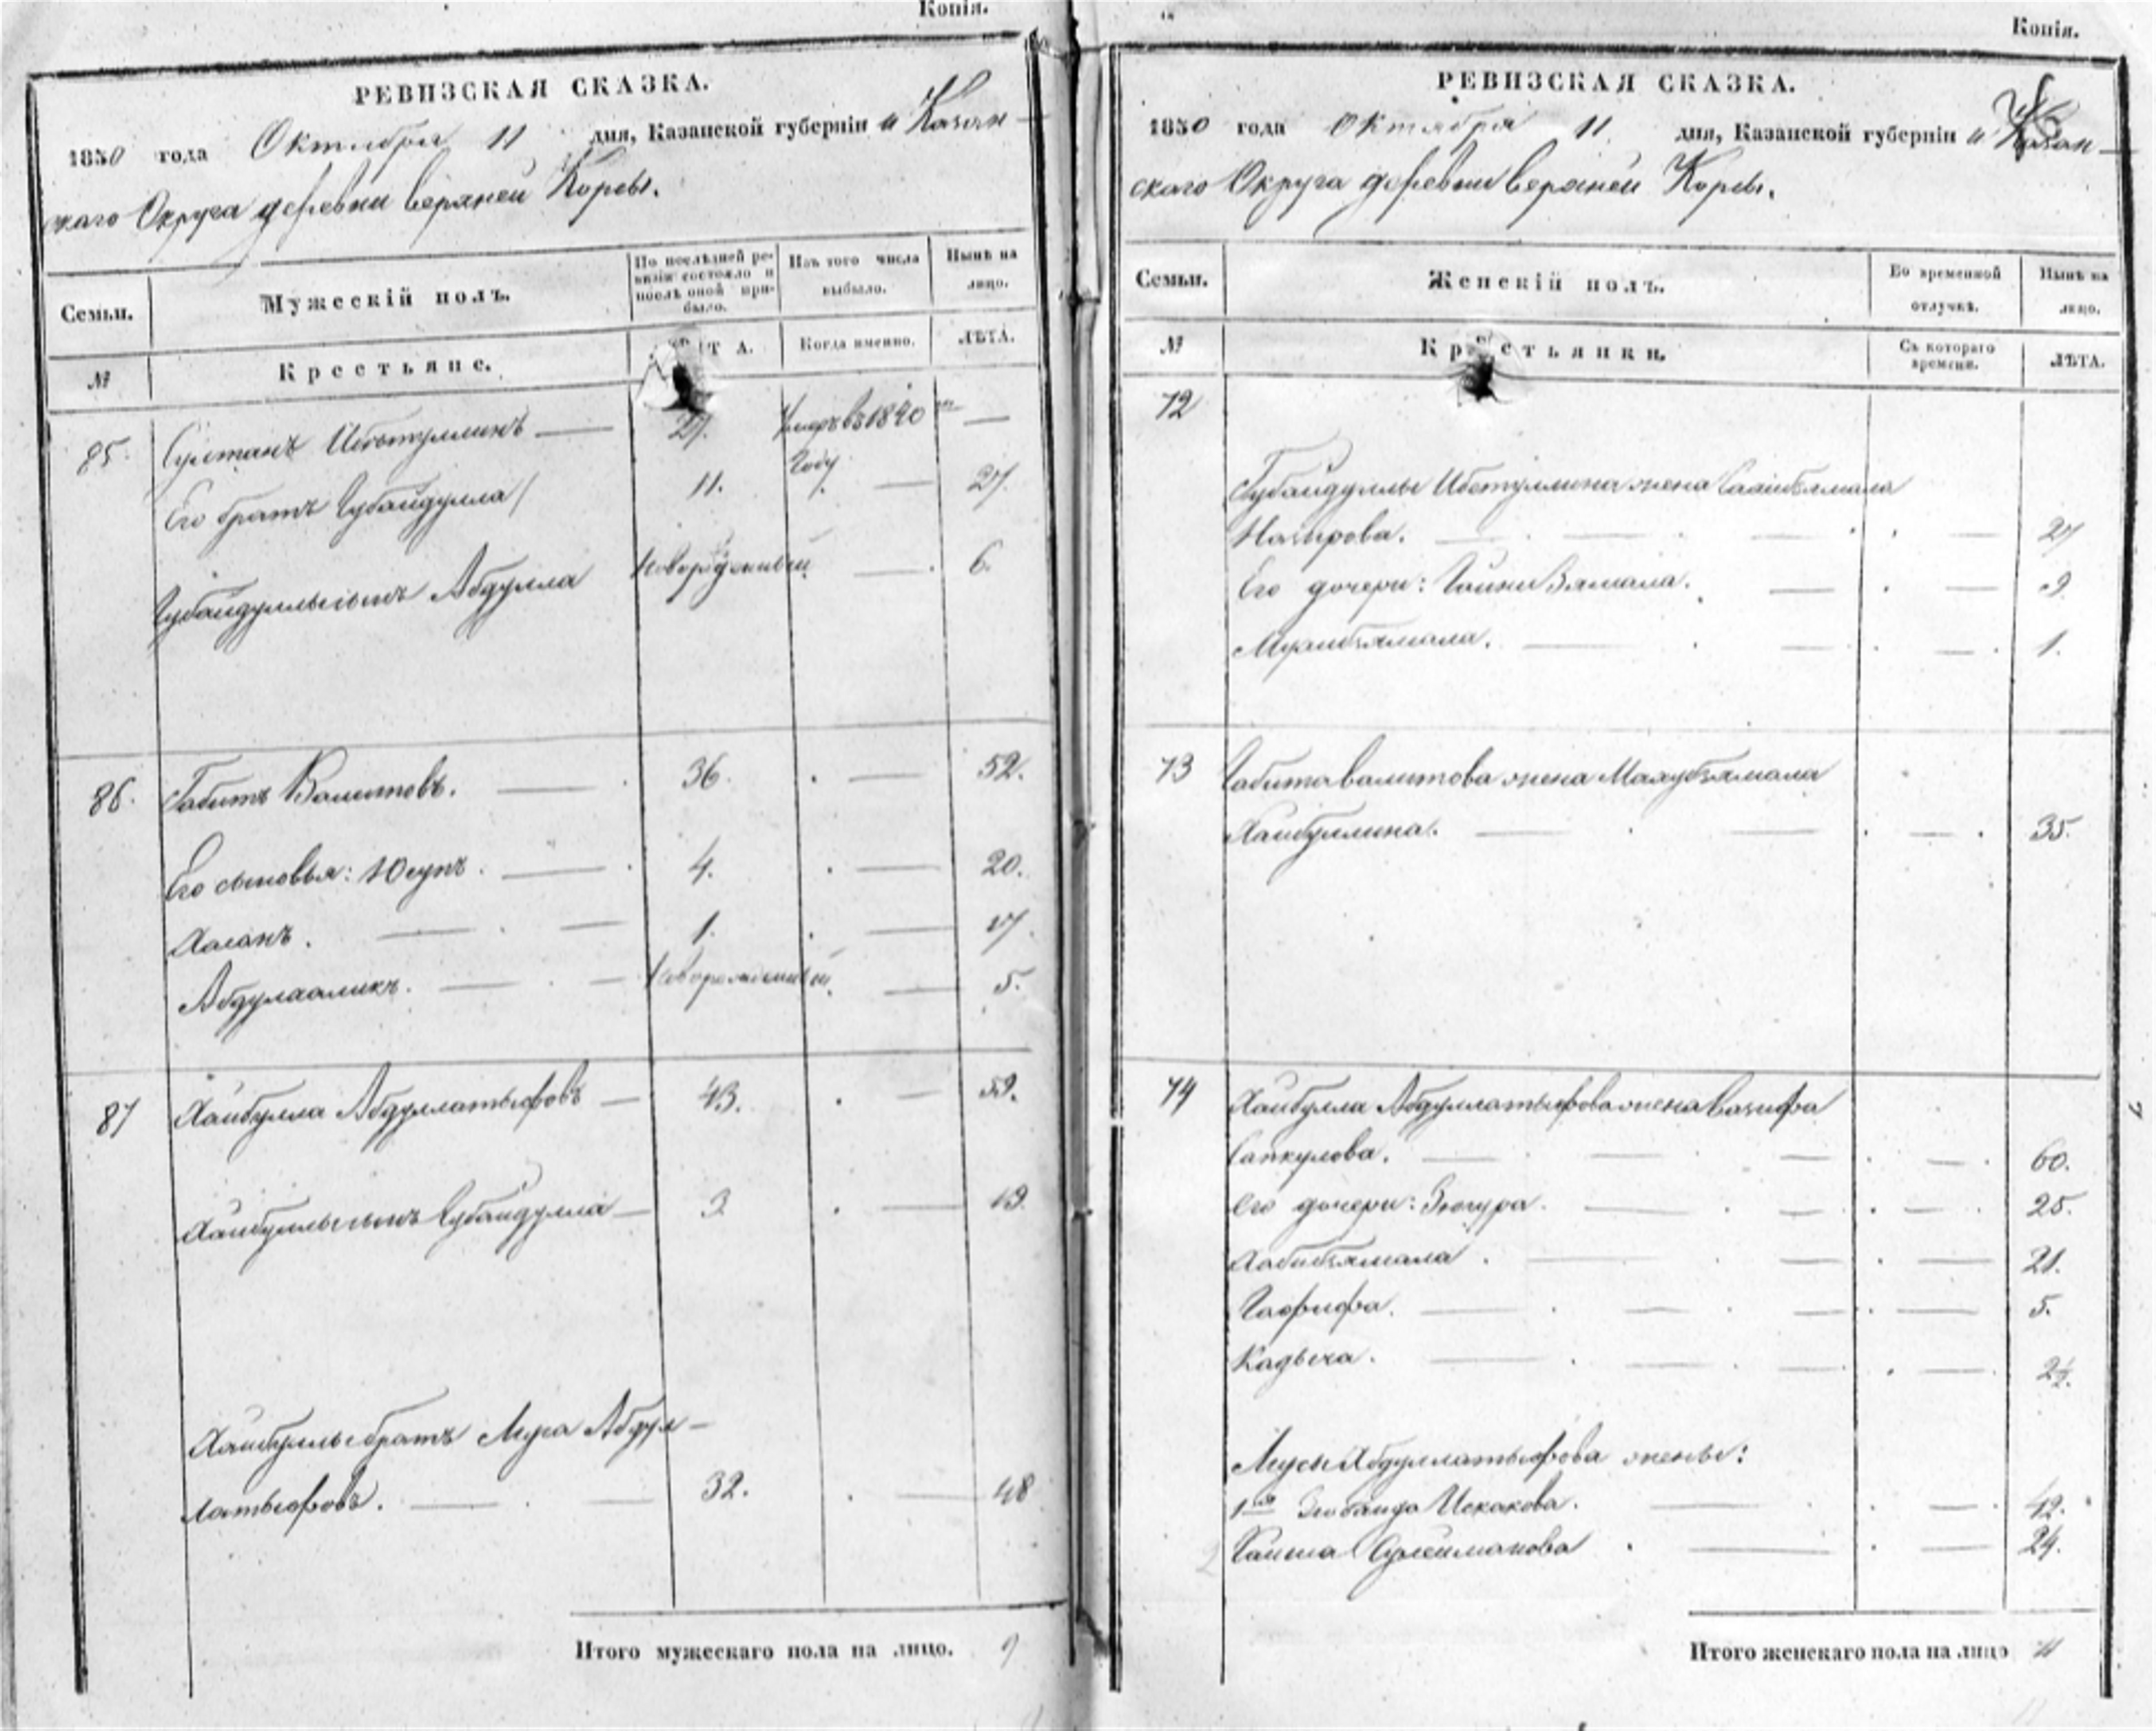 Копія.
РЕВИЗСКАЯ СКАЗКА.
1850 года Октября 11 дня, Казанской губерніи и Казан-
скаго Округа деревни верхней Корсы.
Семьи.
Мужескій полъ.
По послѣдней ре-
визіи состояло и
послѣ оной при-
было.
Изъ того числа
выбыло.
Нынѣ на
лицо.
№
Крестьяне.
Когда именно.
ЛѢТА.
85. Султанъ 27. Умеръ въ 1840 —
году
Его братъ Губайдулла 11. — 27.
Губайдуллы сынъ Абдулла Новорожденный — 6.
86. Габитъ Валитовъ. — 36. — 52.
Его сыновья: Юсупъ. — 4. — 20.
Хасанъ. — 1. — 17.
Новорожденный. — 5.
87 Хайбулла Абдуллатыфовъ — 43. — 59.
Хайбуллы сынъ Губайдулла — 3 — 19.
Хайбуллы братъ Муса Абдул-
латыфовъ. — 32. — 48
Итого мужескаго пола на лицо. 9
Копія.
РЕВИЗСКАЯ СКАЗКА.
1850 года Октября 11. дня, Казанской губерніи и Казан-
скаго Округа деревни верхней Корсы.
Семьи.
Женскій полъ.
Во временной
отлучкѣ.
Нынѣ на
лицо.
№
Крестьянки.
Съ котораго
времени.
ЛѢТА.
72
Губайдуллы жена
Назирова. — 27
Его дочери: — 9
— 1.
73 Габита валитова жена Махубзямала
Хайбуллина. — 35.
74 Хайбулла Абдуллатыфова жена вазифа
Сапкулова. — 60.
Его дочери: Зюгура. — 25.
Хабибзямала. — 21.
Гафифа. — 5.
Кадыча. — 2½.
Мусы Абдуллатыфова жены:
1ая Зюбаида Искакова. — 42.
2 Гайша Сулейманова — 24.
Итого женскаго пола на лицо 11